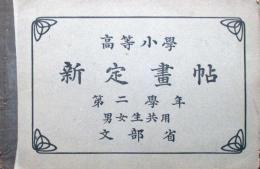 高等小學
新定畫帖
第二學年
男女生共用
文部省